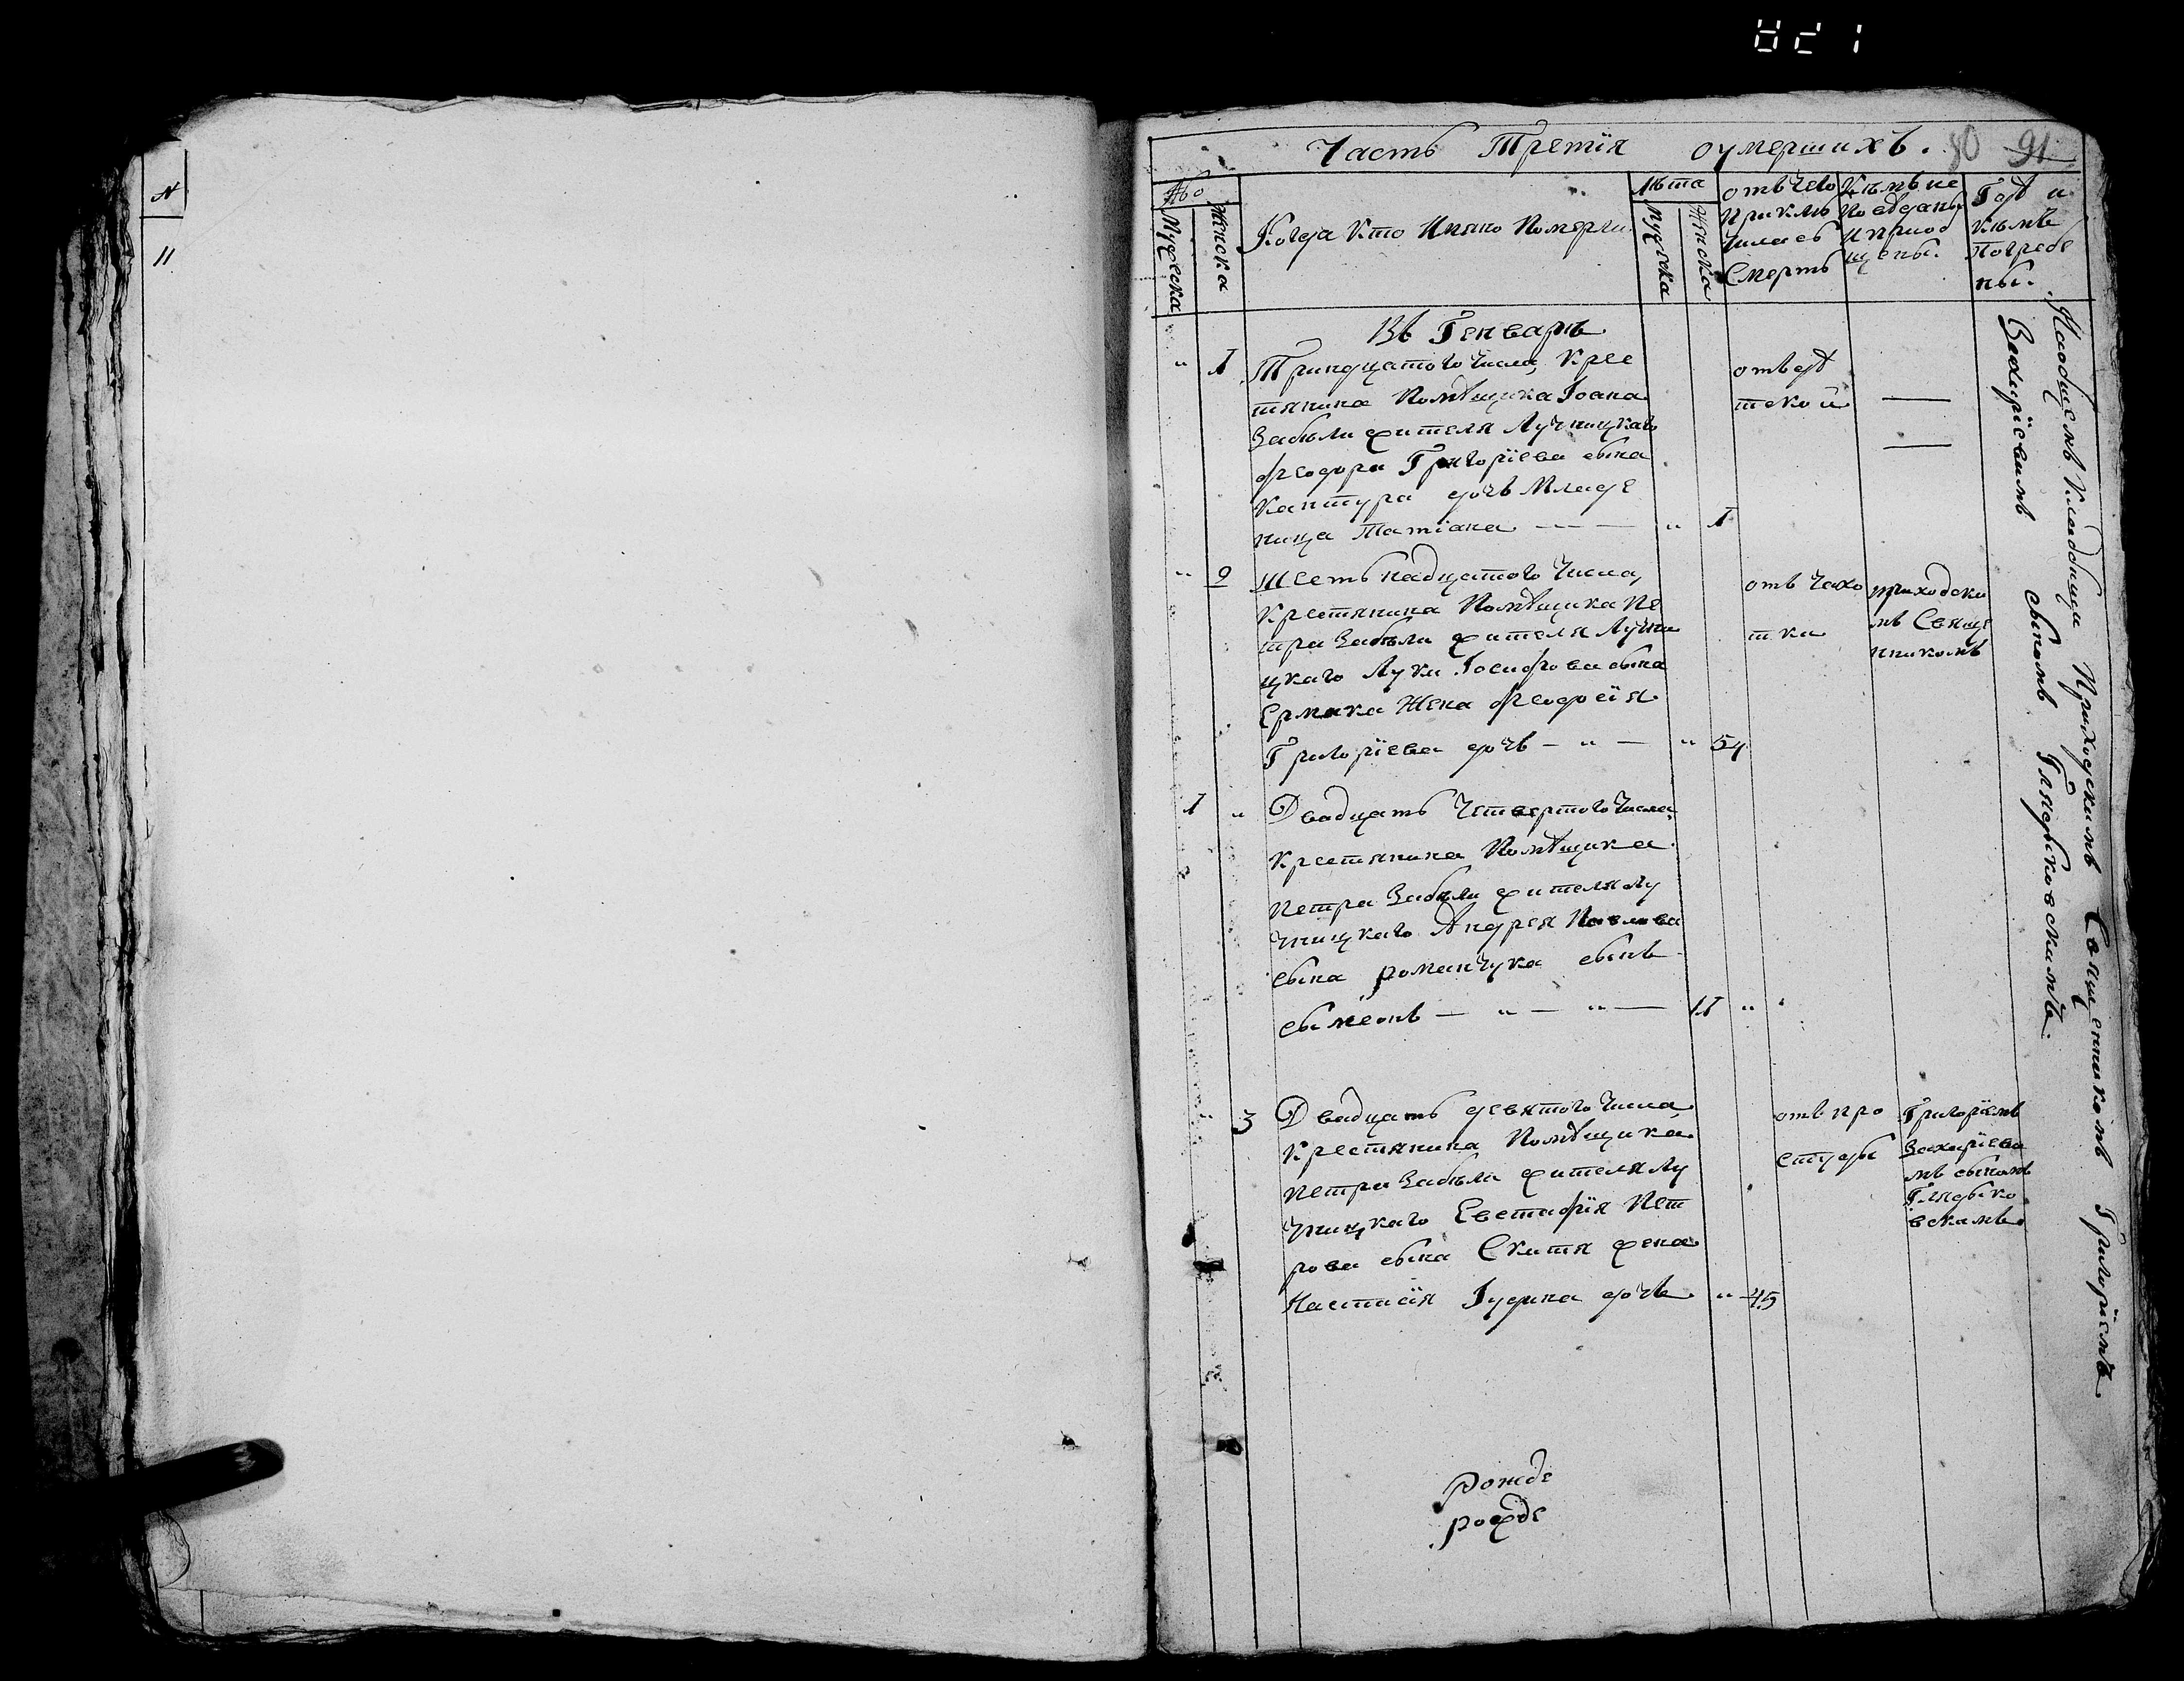 N
11
Часть Третiя оумершихъ. 80 91
Число
Мужеска
Женска
Когда Кто Имяно Померли
Лѣта
мужеска
женска
отъ чего
приклю
чилась
Смерть
Кѣмъ ис
повѣданы
и приоб
щены.
Гдѣ и
кѣмъ
погребе
ны.
Въ Генварѣ
" 1 Тринадцатого числа, Крес
тянина Помѣщика Iоана
Забѣли жителя Лучницкаго
Феодора Григорiева сына
Кантура дочь Младе
ница Татiана — — " 1
отъ
—
—
" 2 Шестьнадцатого числа,
Крестянина Помѣщика Пе
тра Забѣли жителя Лучни
цкаго Луки Iосифова сына
Ермака Жена Феодосiя
Григорiева дочь — " — " 54
отъ чахо
тки
приходски
мъ Свяще
нникомъ
1 " Двадцать Четвертого числа
Крестянина Помѣщика
Петра Забѣли жителя Лу
чницкаго Андрея Павлова
сына романчука сынъ
сымеонъ — " — " — 11 "
3 Двадцать девятого числа,
Крестянина Помѣщика
Петра Забѣли жителя Лу
чницкаго Евстафiя Пет
рова сына Скитя жена
Настасiя Iудина дочь " 45
отъ про
студы
Григорiемъ
Захарiева
мъ сыномъ
Глядыко
вскимъ
На общемъ Кладбищи Приходскимъ Священникомъ Григорiемъ
Захарiевимъ сыномъ Глядыковскимъ.
рожде
рожде